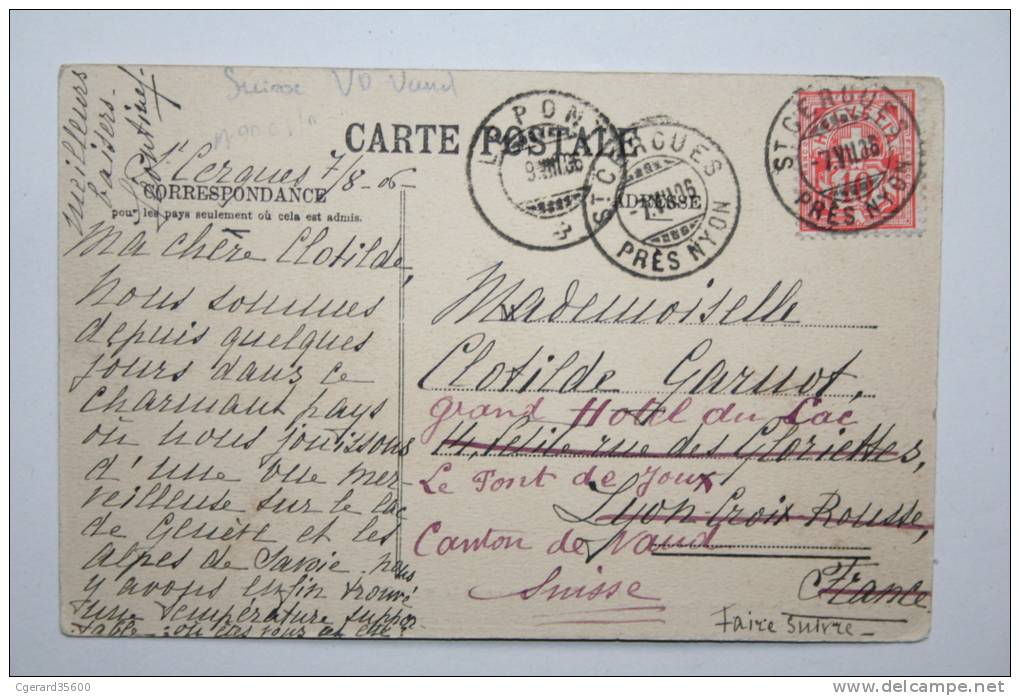 Suisse VD Vaud
CARTE POSTALE
meilleurs
baisers.
St Cergues 7/8-06
CORRESPONDANCE
pour les pays seulement où cela est admis.
Ma chère Clotilde,
Nous sommes
depuis quelques
jours dans ce
charmant pays
où nous jouissons
d'une vue mer-
veilleuse sur le lac
de Genève et les
Alpes de Savoie. nous
y avons enfin trouvé
une température suppor
table
LE PONT
9.VIII.06
ST CERGUES
-7.VIII.06
PRÈS NYON
ADRESSE
ST CERGUES
-7.VIII.06
PRÈS NYON
10
Mademoiselle
Clotilde Garnot,
Grand Hotel du Lac
14, Petite rue des Gloriettes,
Le Pont de Joux
Lyon-Croix Rousse,
Canton de Vaud
France
Suisse
Faire suivre -
Cgerard35600
www.delcampe.net